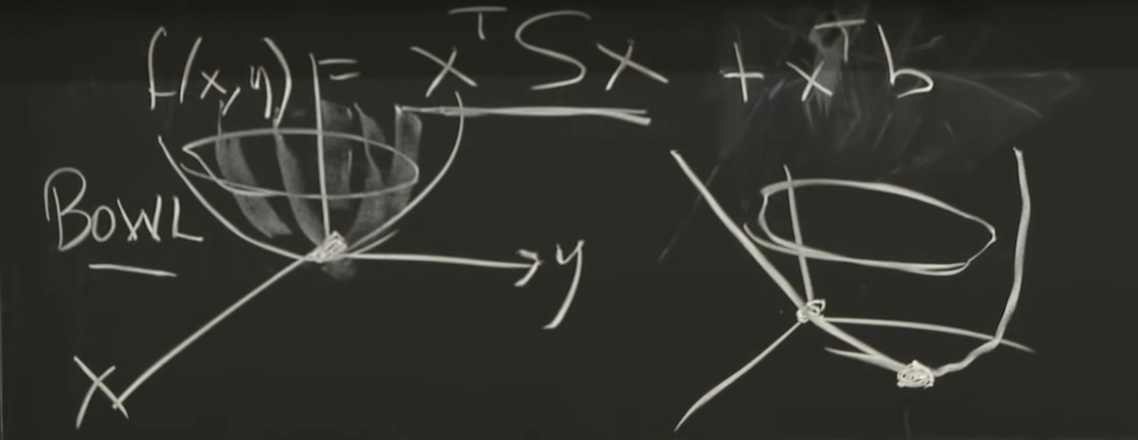 f(x,y) = xᵀSx + xᵀb
BOWL
y
x